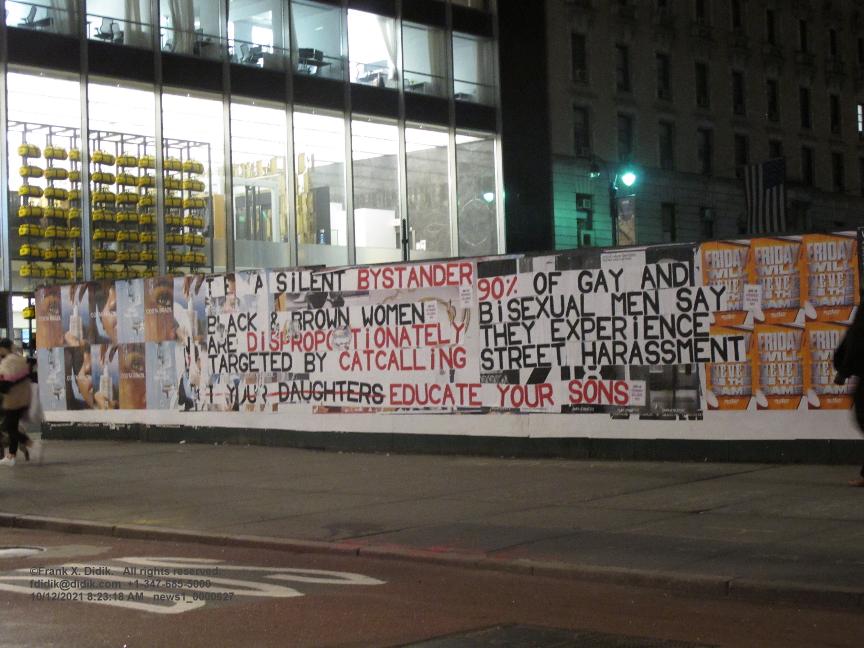 A SILENT BYSTANDER
BLACK & BROWN WOMEN
ARE DISPROPO TIONATELY
TARGETED BY CATCALLING
YOUR DAUGHTERS EDUCATE YOUR SONS
90% OF GAY AND
BiSEXUAL MEN SAY
THEY EXPERIENCE
STREET HARASSMENT
©Frank X. Didik. All rights reserved.
fdidik@didik.com +1-347-685-5000
10/12/2021 8:23:18 AM news1_0000527